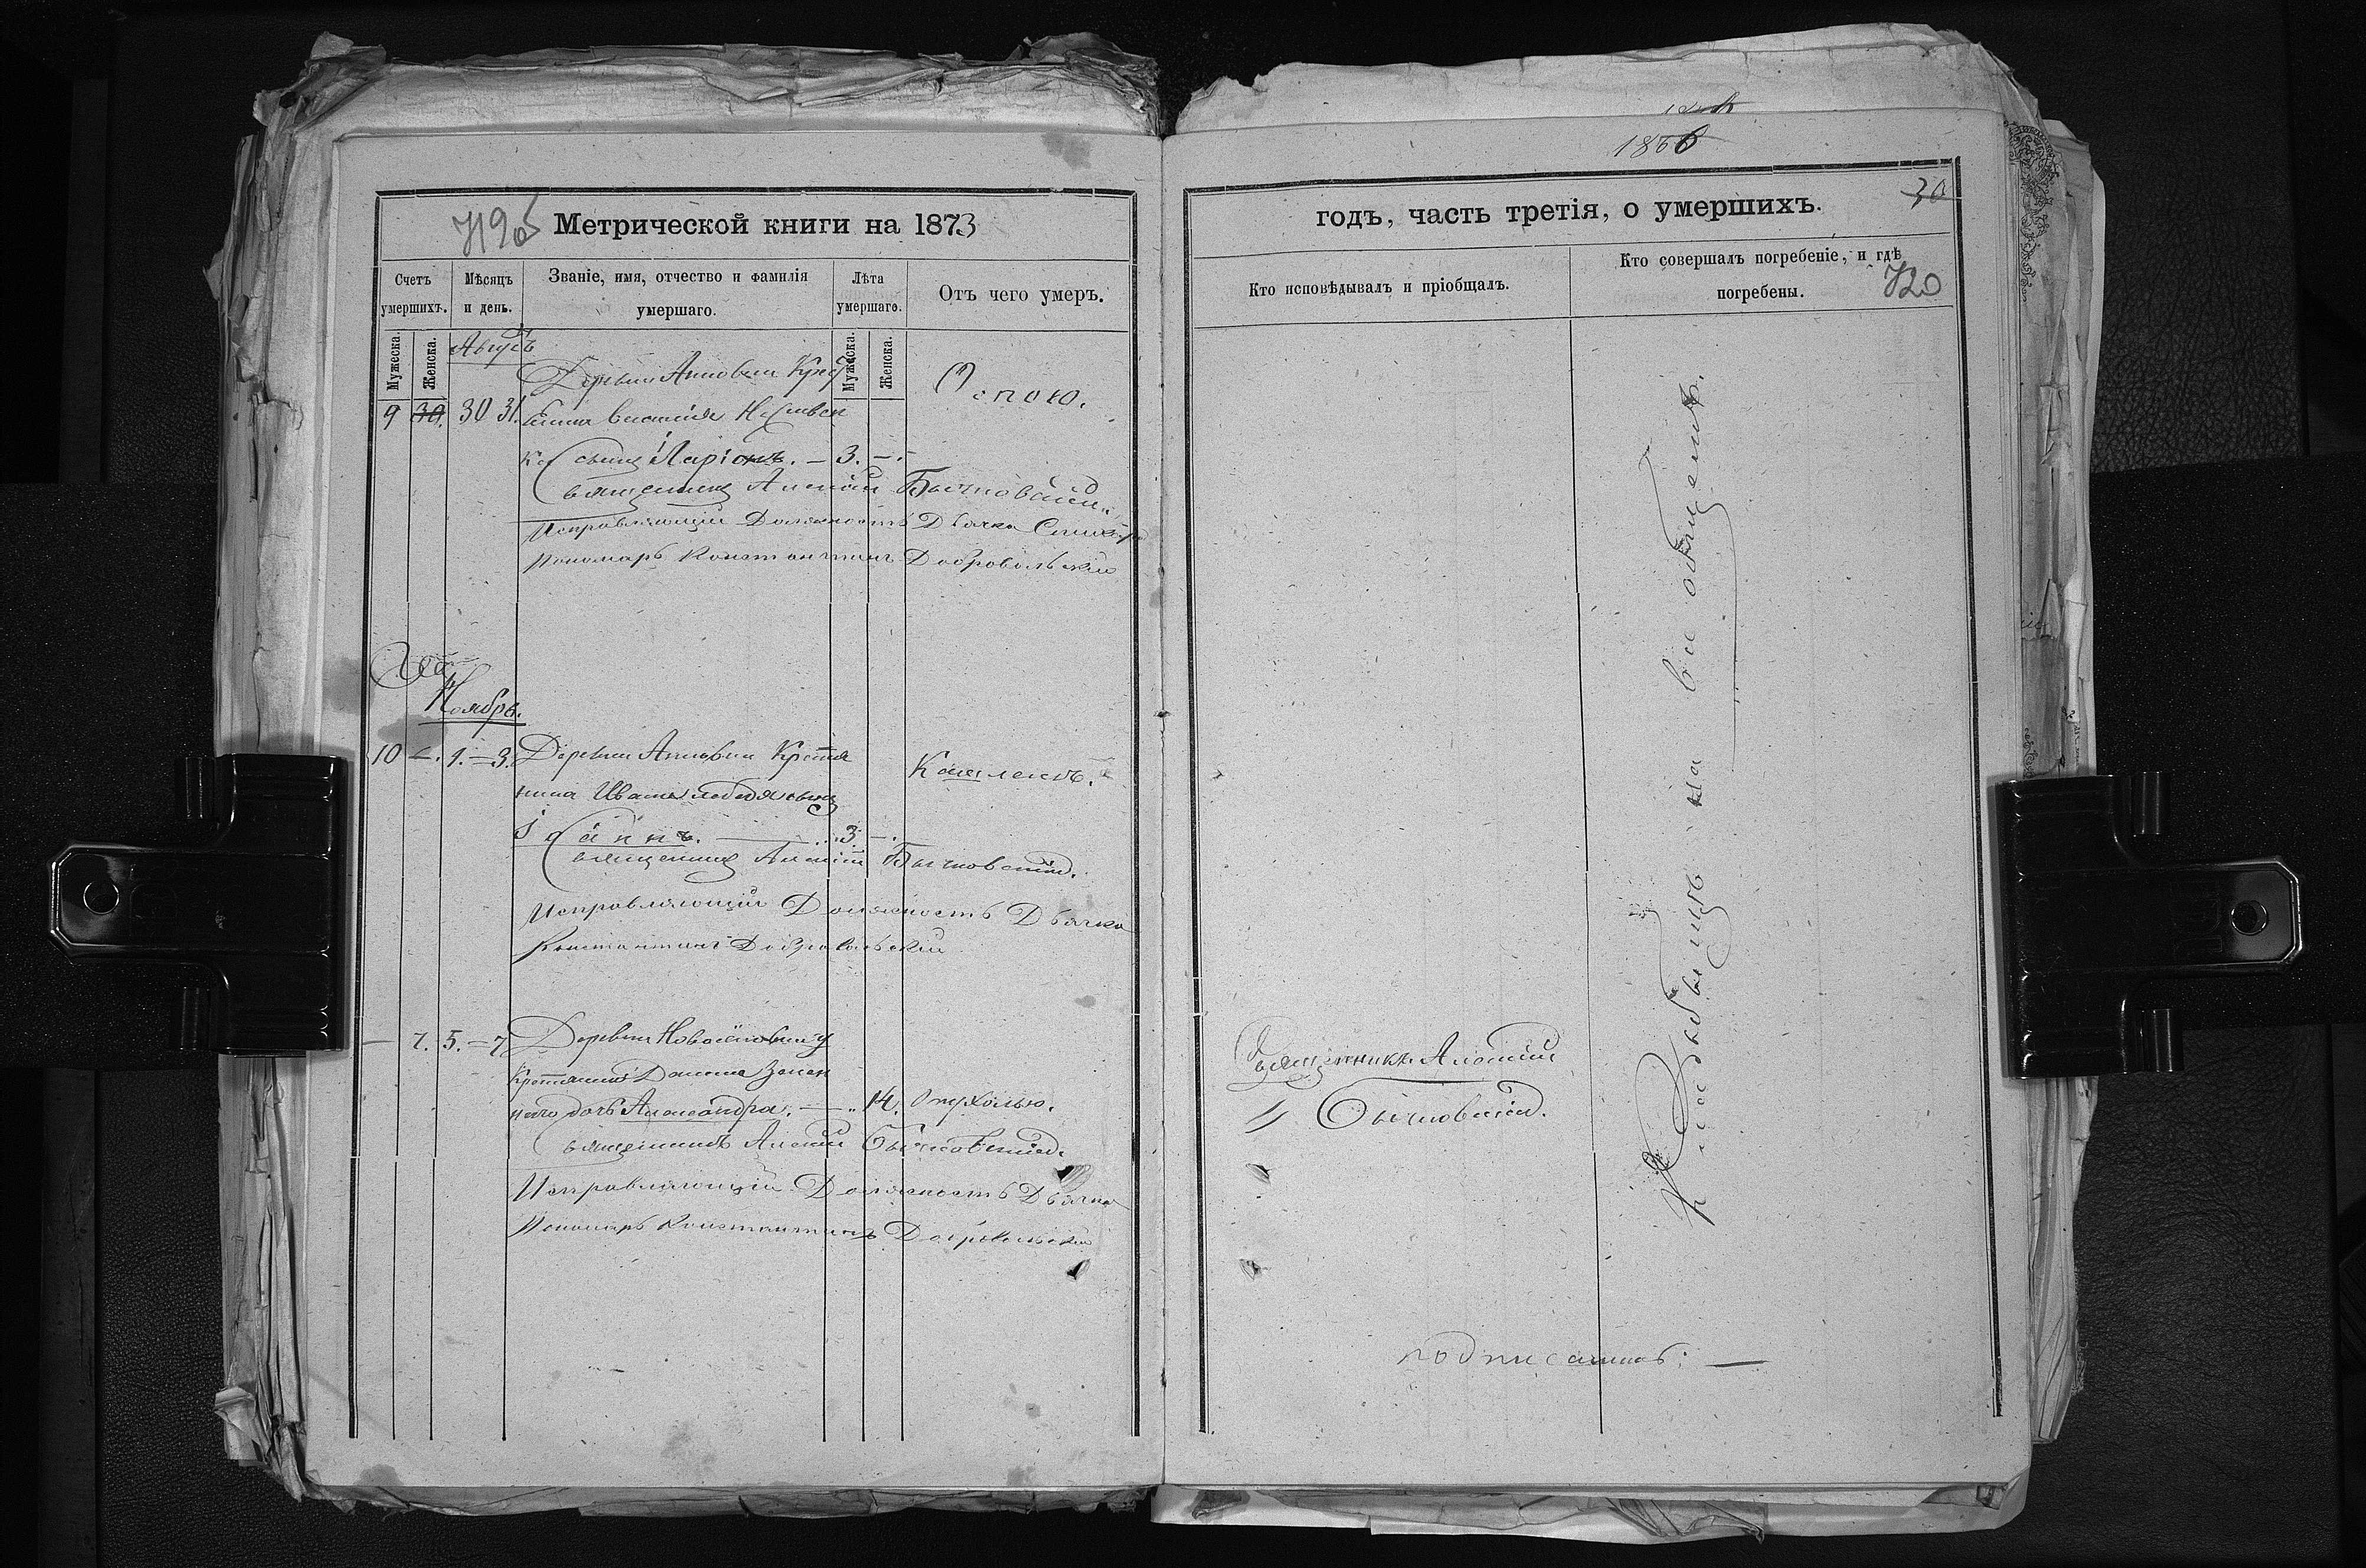 719об
Метрической книги на 1873
Счетъ умершихъ.
Мѣсяцъ и день.
Званіе, имя, отчество и фамилія умершаго.
Лѣта умершаго.
Отъ чего умеръ.
Мужеска.
Женска.
Мужеска.
Женска.
Августъ
Деревни Анновки Крест
9 30. 30 31. янина Василія
сынъ Иларіонъ. — 3. —.
Оспою.
Священникъ Алексій Бычковскій.
Исправляющій Должность Дьячка
Пономарь Константинъ Добровольскій
Ноябрь.
10 —. 1. — 3. Деревни Анновки Крестья
нина Ивана Лебедя сынъ
Іоаннъ. — 3. —.
Кашлемъ.
Священникъ Алексій Бычковскій.
Исправляющій Должность Дьячка
Константинъ Добровольскій
— 7. 5. — 7. Деревни
Крестьянина Данила
дочь Александра. — 14. Опухолью.
Священникъ Алексій Бычковскій.
Исправляющій Должность Дьячка
Пономарь Константинъ Добровольскій
1886
30
годъ, часть третія, о умершихъ.
Кто исповѣдывалъ и пріобщалъ.
Кто совершалъ погребеніе, и гдѣ погребены.
720
На кладбищѣ на
Священникъ Алексій
Бычковскій.